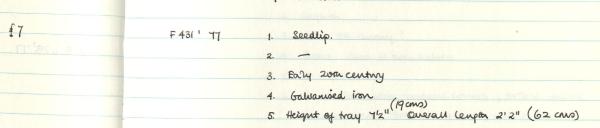 £7
F 431 ' 77
1. Seedlip.
2. —
3. Early 20th century
4. Galvanised iron
5. Height of tray 7½" (19 cms) Overall length 2'2" (62 cms)